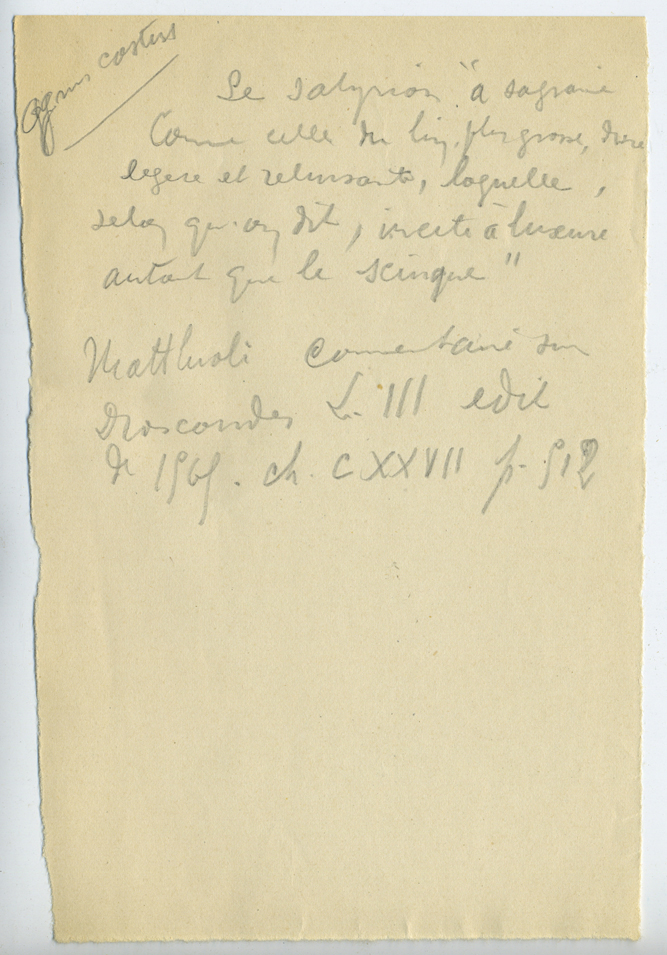 agnus castus
Le satyrion "a sa graine
Comme celle du lin, plus grosse, dure
legere et reluisante, laquelle,
selon qu'on dit, incite à luxure
autant que le scinque"
Matthioli Comentaire sur
Dioscorides L. III edit
de 1565. ch. CXXVII p. 512